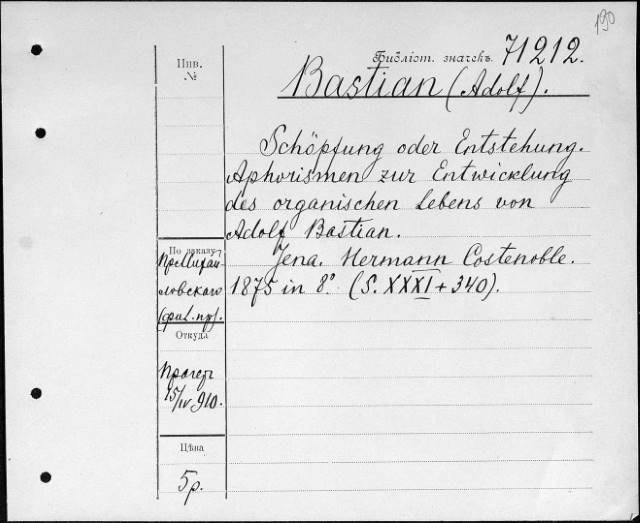 190
Библіот. значекъ 71212.
Инв.
№
Bastian (Adolf).
Schöpfung oder Entstehung.
Aphorismen zur Entwicklung
des organischen Lebens von
Adolf Bastian.
Jena. Hermann Costenoble.
1875 in 8° (S. XXXI + 340).
По заказу
Пр.
ловскаго
Откуда
15/IV 910.
Цѣна
5 р.